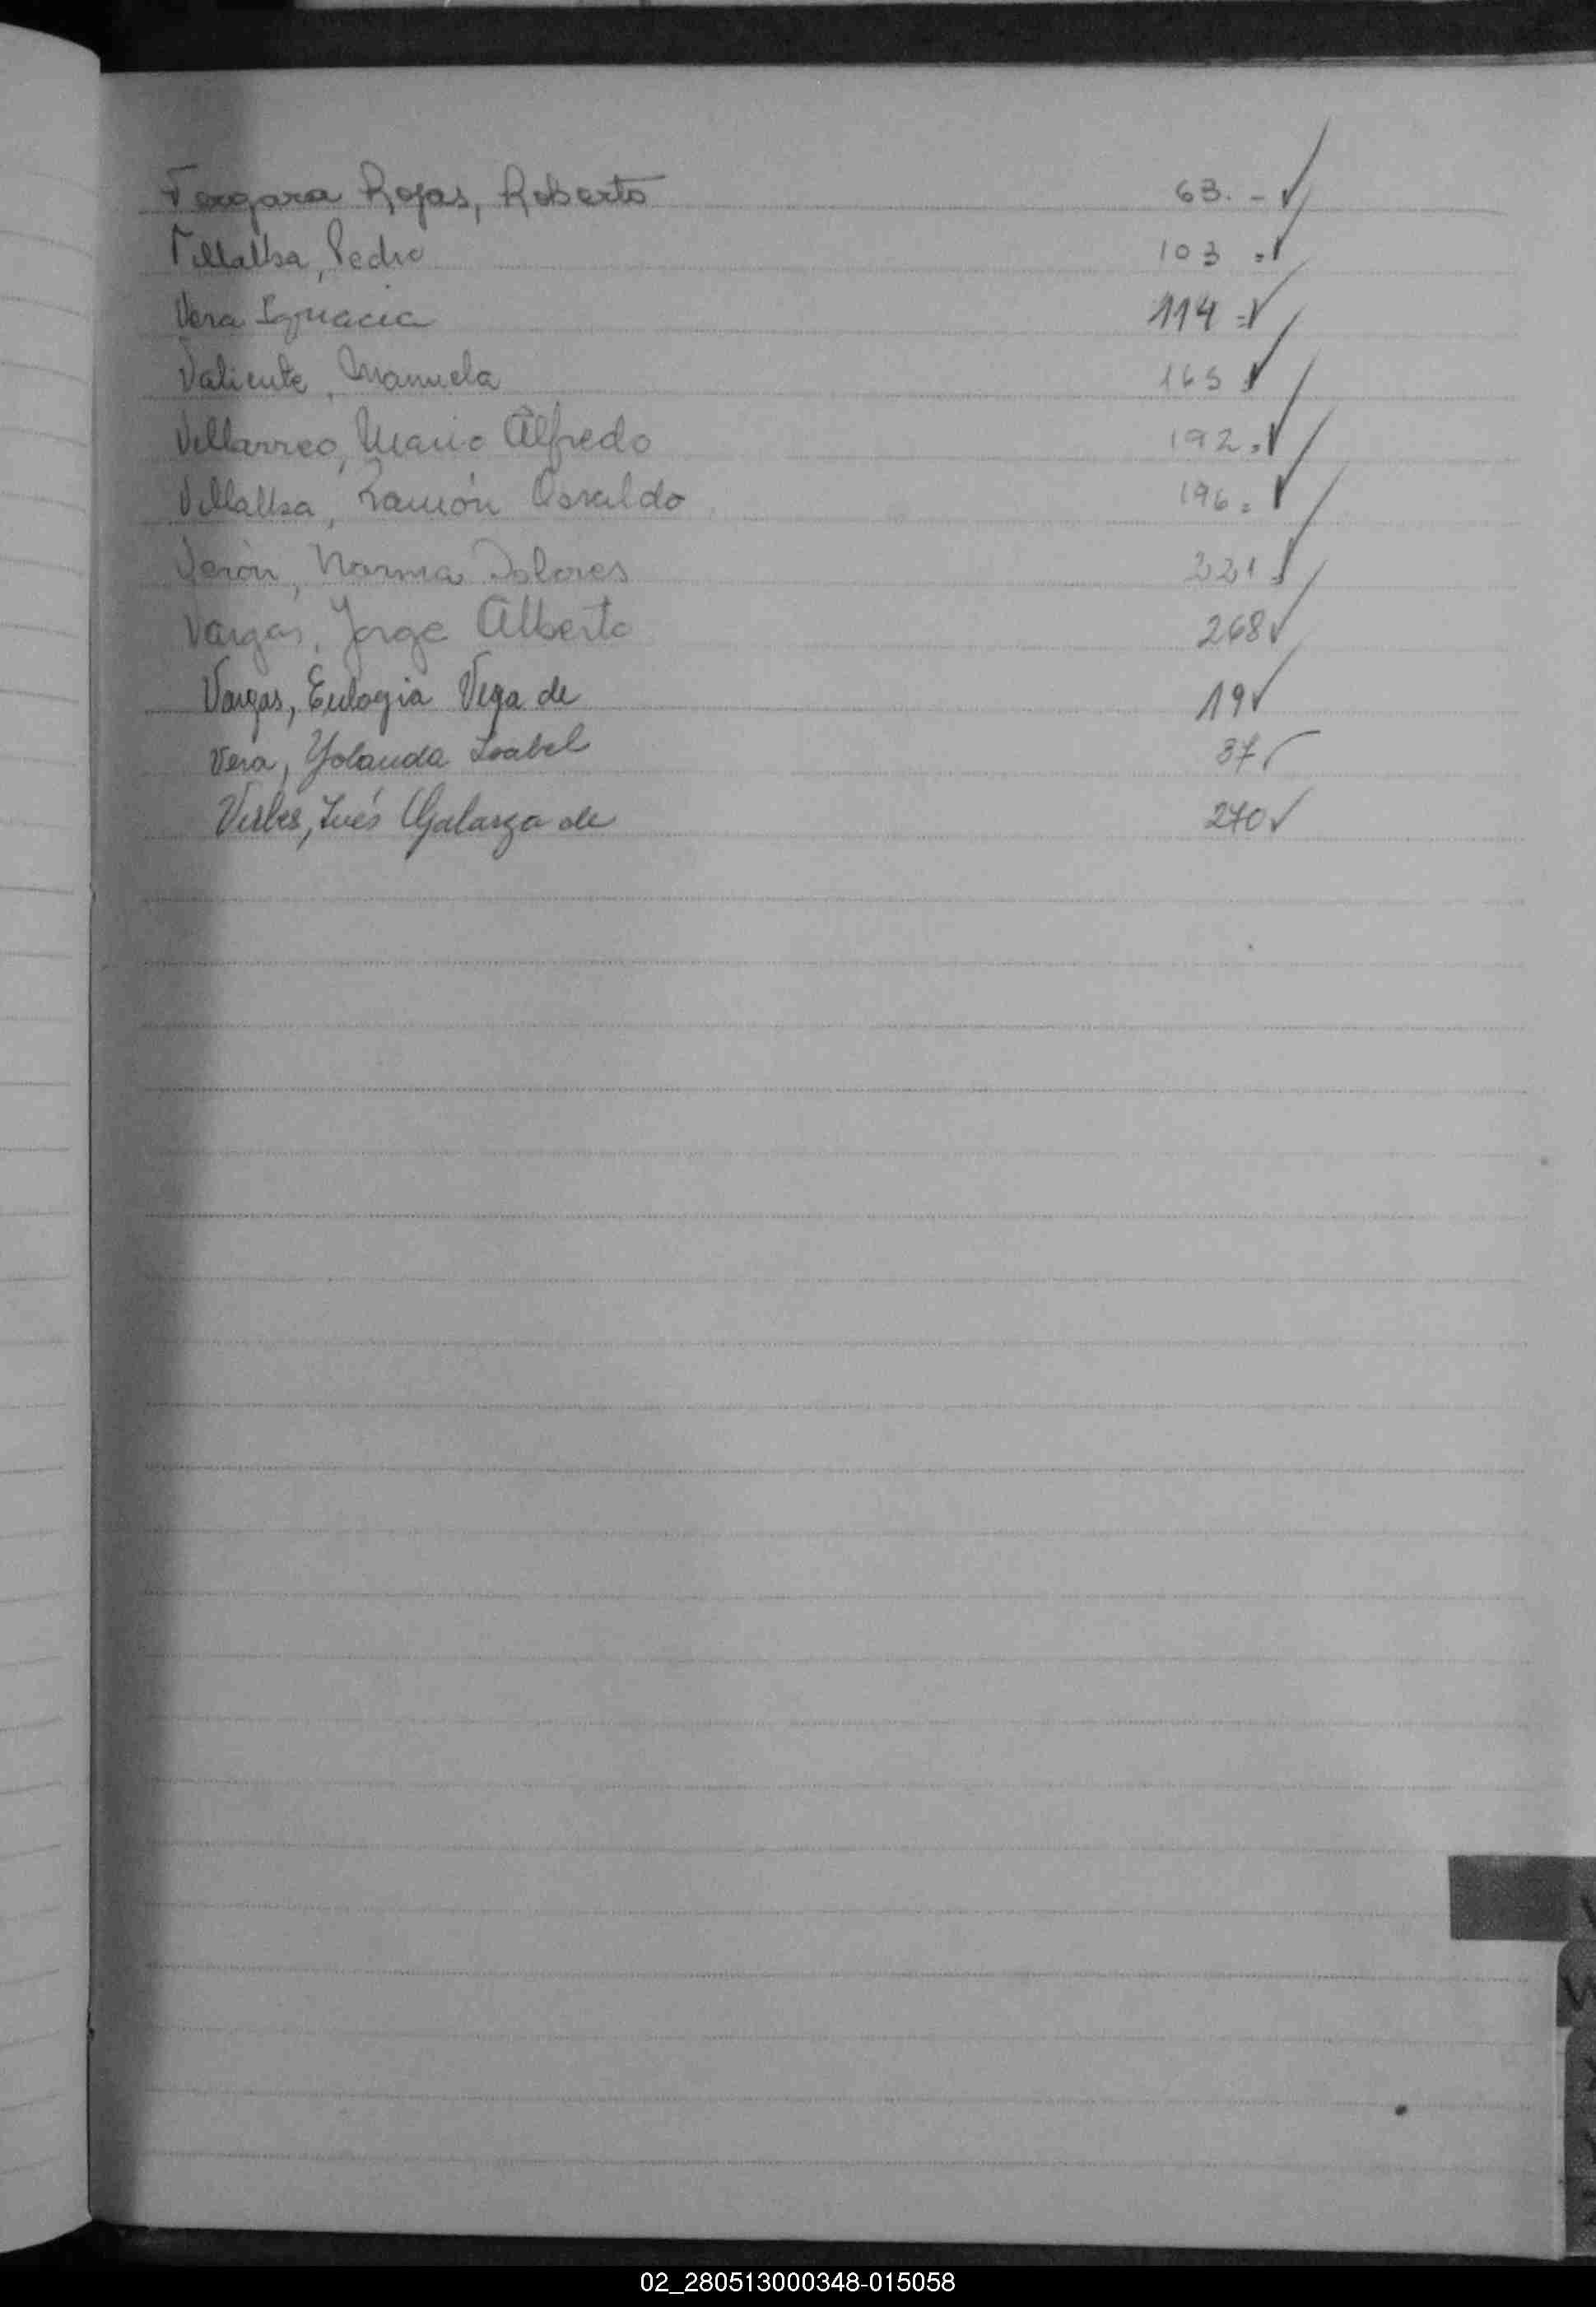 Vergara Rojas, Roberto 63. - ✓
Villalba, Pedro 103 = ✓
Vera Ignacia 114 = ✓
Valiente, Manuela 165 ✓
Villarreo, Mario Alfredo 192 = ✓
Villalba, Ramón Osvaldo 196 = ✓
Verón, Norma Dolores 221 ✓
Vargas, Jorge Alberto 268 ✓
Vargas, Eulogia Vega de 19 ✓
Vera, Yolanda Isabel 37 ✓
Inés Galarza de 270 ✓
V
W
02_280513000348-015058